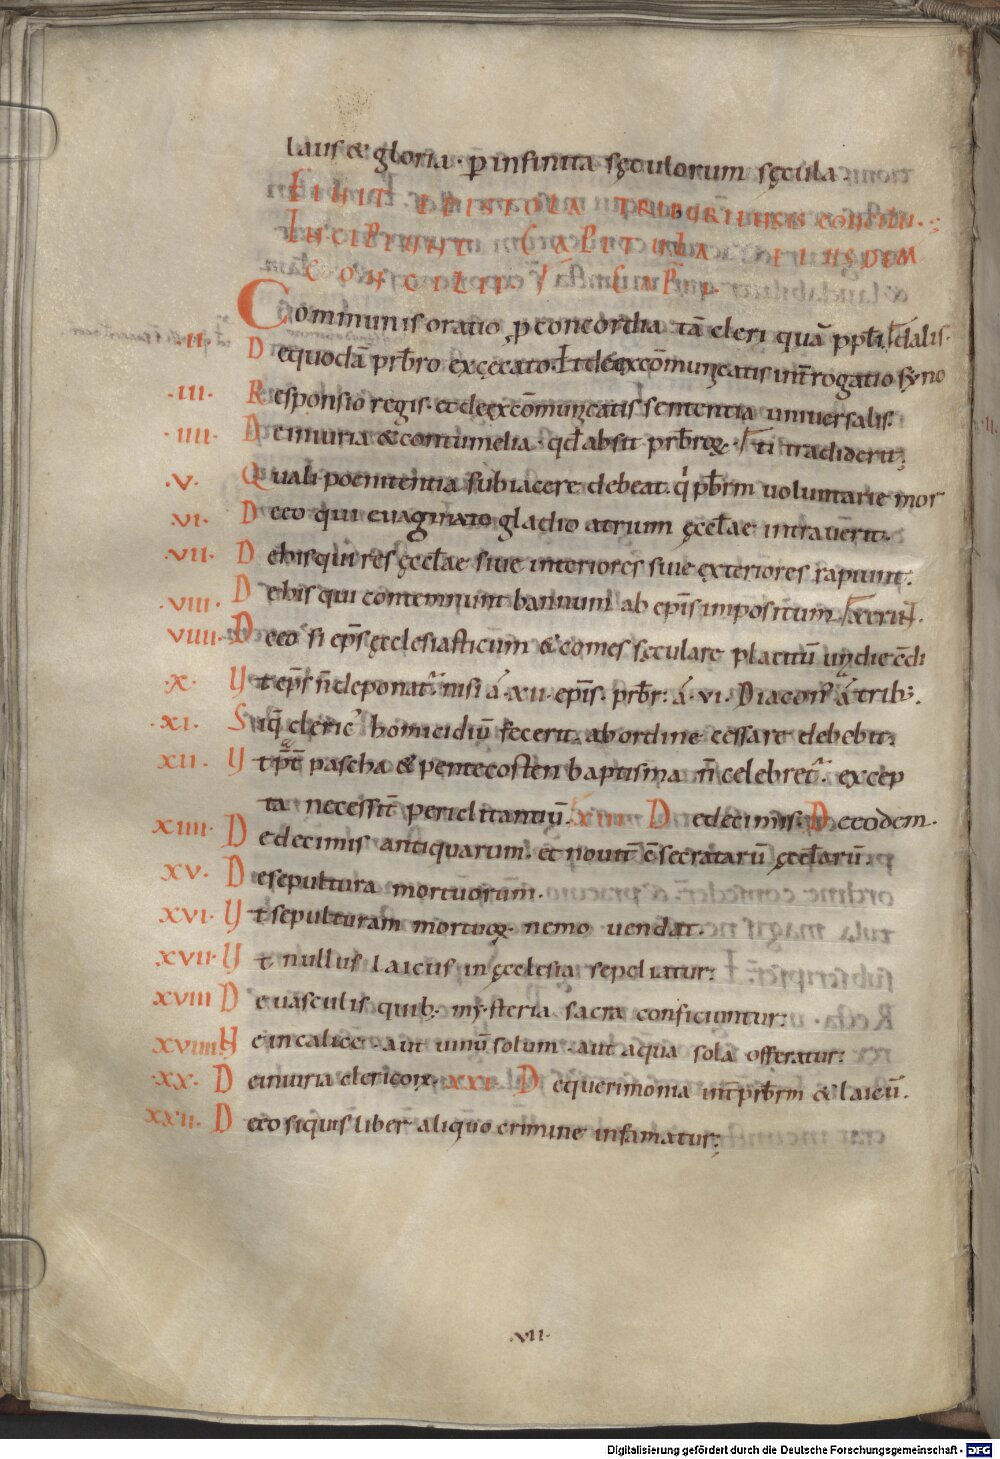 laus & gloria · p̄ infinita sęculorum sęcula .
FINIT EPISTOLA TRIBURIENSIS CONCILII .
INCIPIUNT CAPITULA EIUSDEM
CONCILII CAP̄ I .
Communis oratio p̱ concordia tā cleri quā ppłi, ſ dalis·
·II· De quodā prƀro excęcato. Et de excōmunicatis int̄rogatio syno
·III· Responsio regis. et de excōmunicatis sententia universalis.
·IIII· De iniuria & contumelia · qd̄ absit prƀroꝝ · ſ ti tradiderit;
·V· Quali poenitentia subiacere debeat. q' pƀrm voluntarie mor
·VI· De eo qui evaginato gladio atrium ęccłae intraverit.
·VII· De his qui res ęccłae sive interiores sive exteriores rapiunt.
·VIII· De his qui contemnunt bannum ab ep̄is impositum. ſ xerit
VIIII· De eo si ep̄s ęcclesiasticum & comes sęculare placitū un die c̄di
·X· Ut ep̄s n̄ deponat' nisi a · XII · ep̄is. prƀr: a · VI · Diacon' a trib;.
·XI· Si q̄ cleric' homicidiū fecerit. ab ordine cessare debebit.
XII· Ut p̄t pascha & pentecosten baptisma n̄ celebret' excep
ta necessit̄ periclitantiū. XIII De decimis. De eodem.
XIIII· De decimis antiquarum. et novit̄ c̄secratarū ęccłarū.
XV· De sepultura mortuorum.
XVI· Ut sepulturam mortuoꝝ nemo vendat.
XVII· Ut nullus laicus in ęcclesia sepeliatur:
XVIII De vasculis quib; mysteria sacra conficiuntur:
XVIIII Ne in calice · aut vinū solum · aut aqua sola offeratur:
·XX· De iniuria clericoꝝ. XXI· De querimonia int̄ prƀrm & laicū.
XXII· De eo si quis liber aliquo crimine infamatur;
·VII·
Digitalisierung gefördert durch die Deutsche Forschungsgemeinschaft - DFG